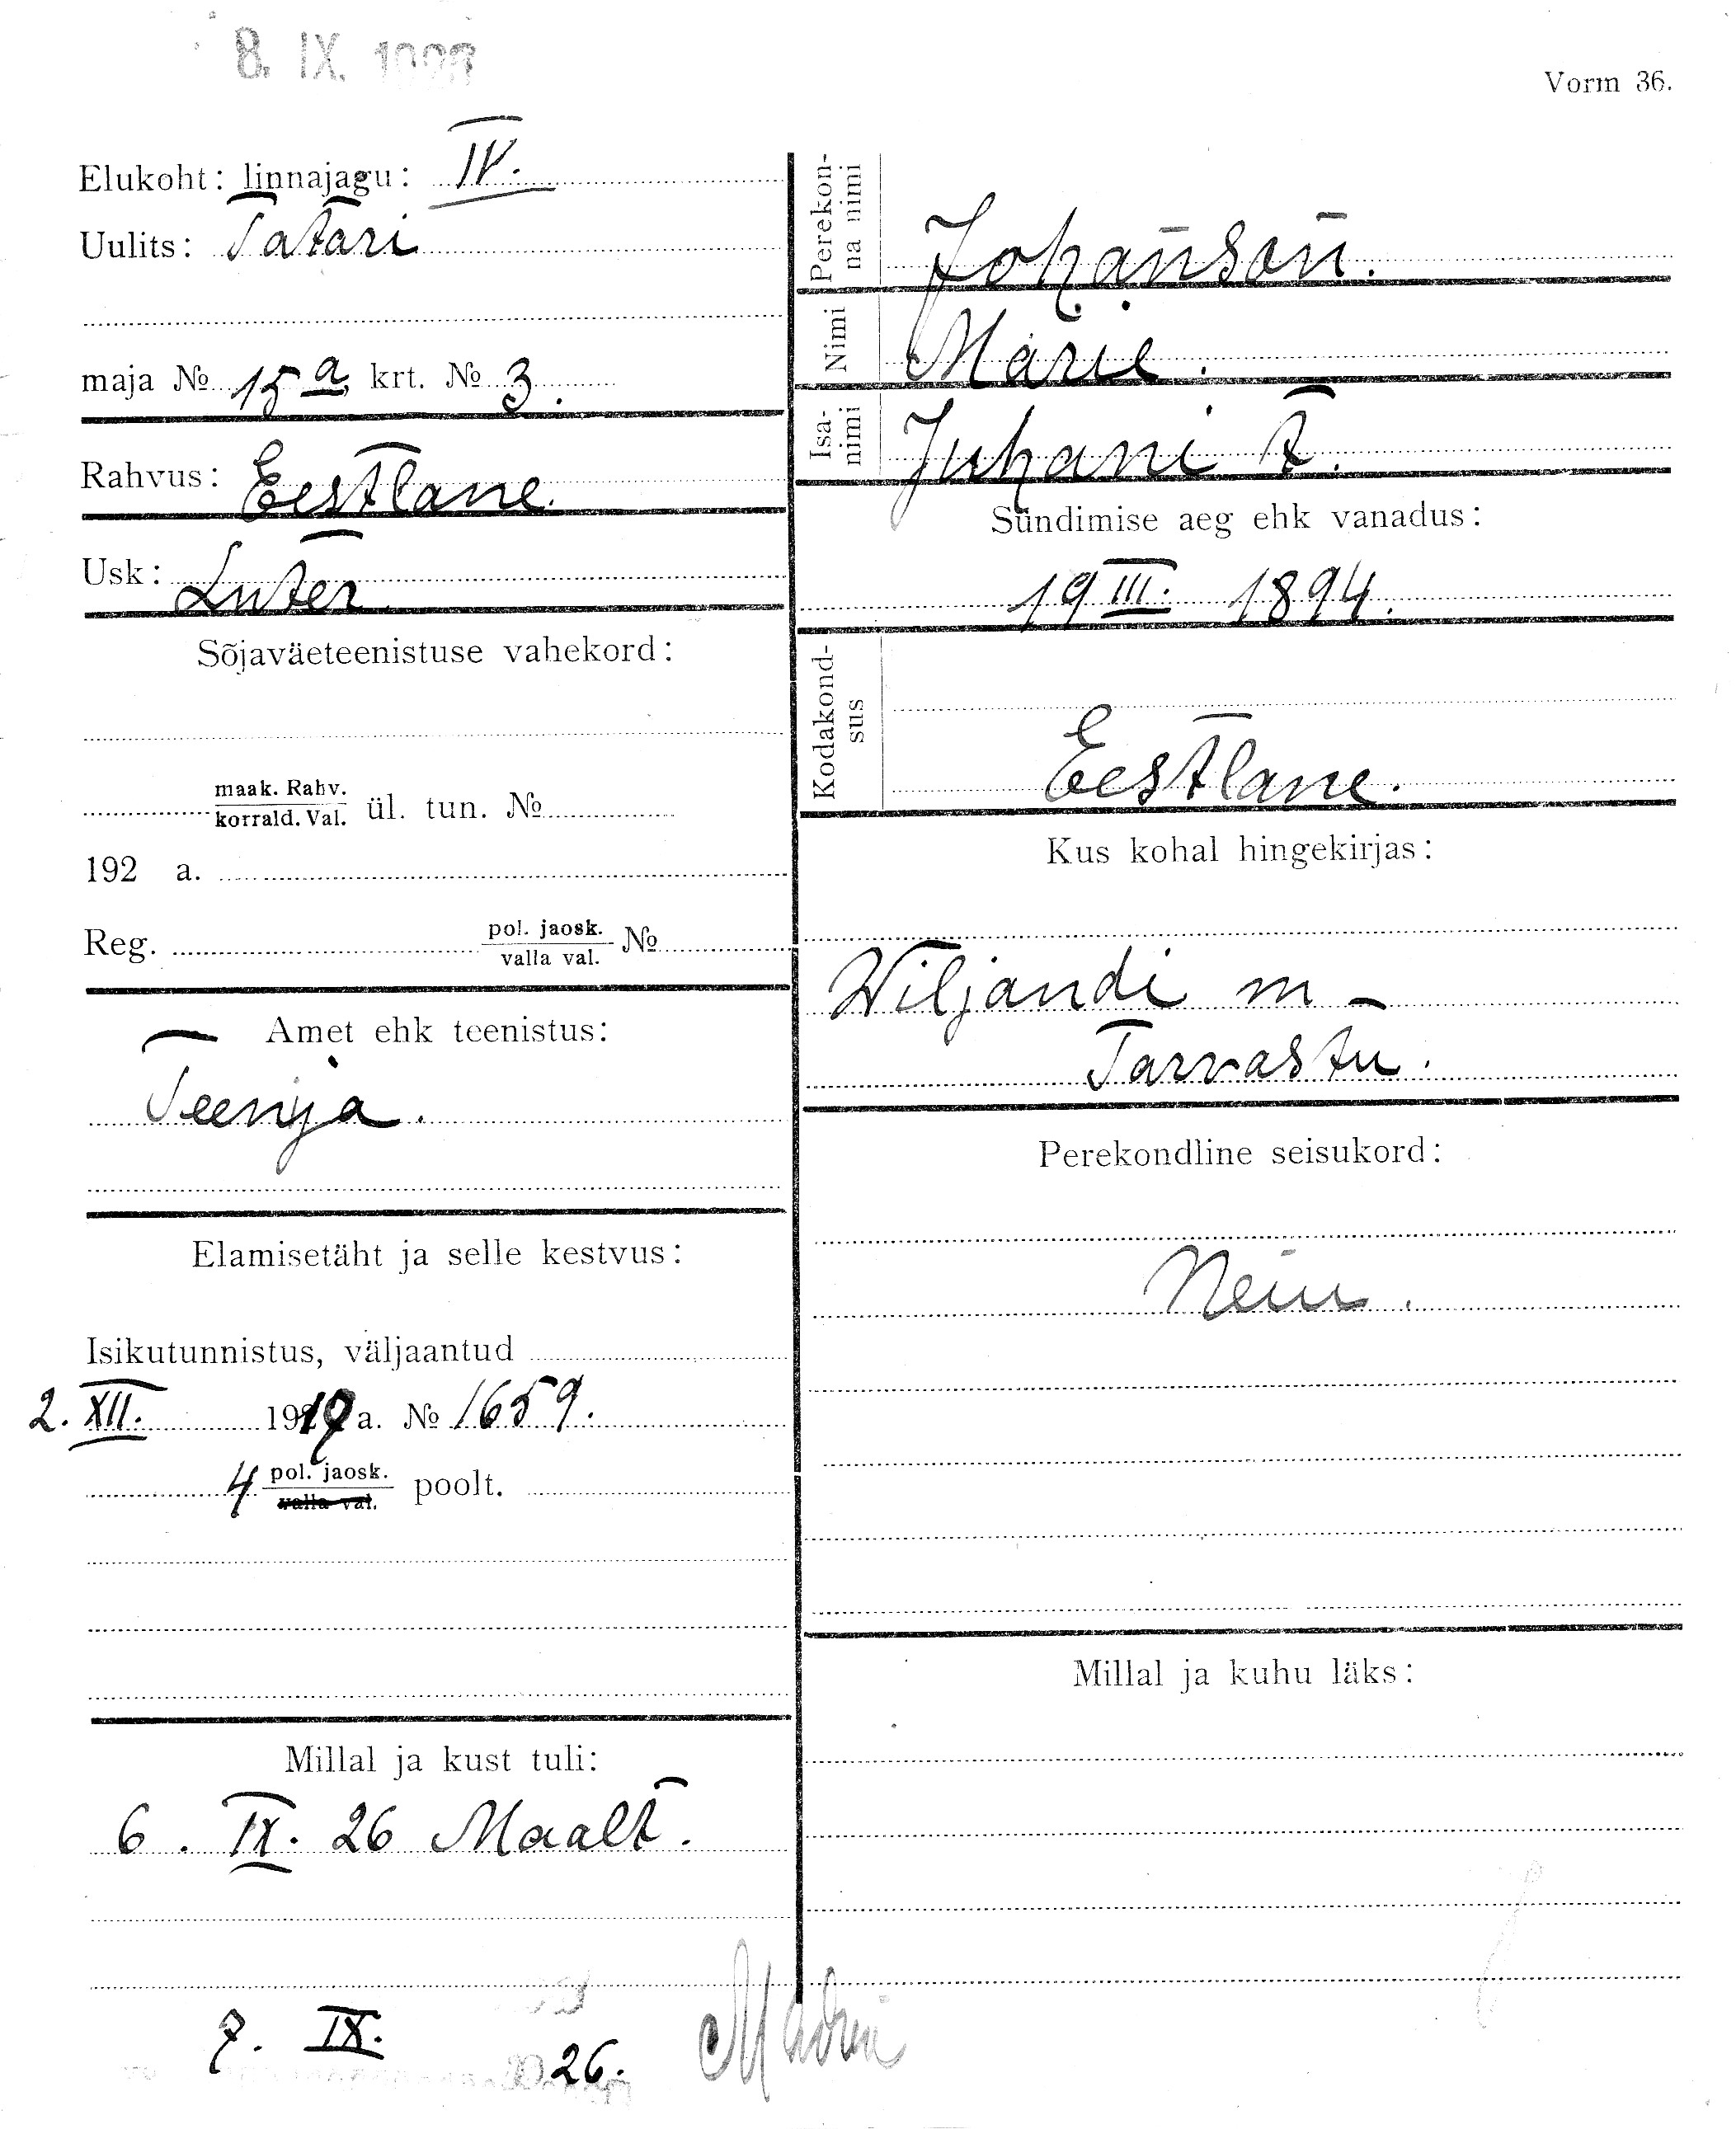 8. IX.
Vorm 36.
Elukoht: linnajagu: IV.
Uulits: Tatari
maja № 15 a krt. № 3.
Rahvus: Eestlane.
Usk: Luter
Sõjaväeteenistuse vahekord:
maak. Rahv.
korrald. Val. ül. tun. №
192 a.
Reg. pol. jaosk.
valla val. №
Amet ehk teenistus:
Teenija.
Elamisetäht ja selle kestvus:
Isikutunnistus, väljaantud
2. XII. 1919 a. № 1659.
4 pol. jaosk.
valla val. poolt.
Millal ja kust tuli:
6. IX. 26 Maalt.
7. IX. 26.
Perekon-
na nimi
Johanson.
Nimi
Marie.
Isa-
nimi
Juhani t.
Sündimise aeg ehk vanadus:
19 III. 1894.
Kodakond-
sus
Eestlane.
Kus kohal hingekirjas:
Wiljandi m -
Tarvastu.
Perekondline seisukord:
Neiu.
Millal ja kuhu läks: